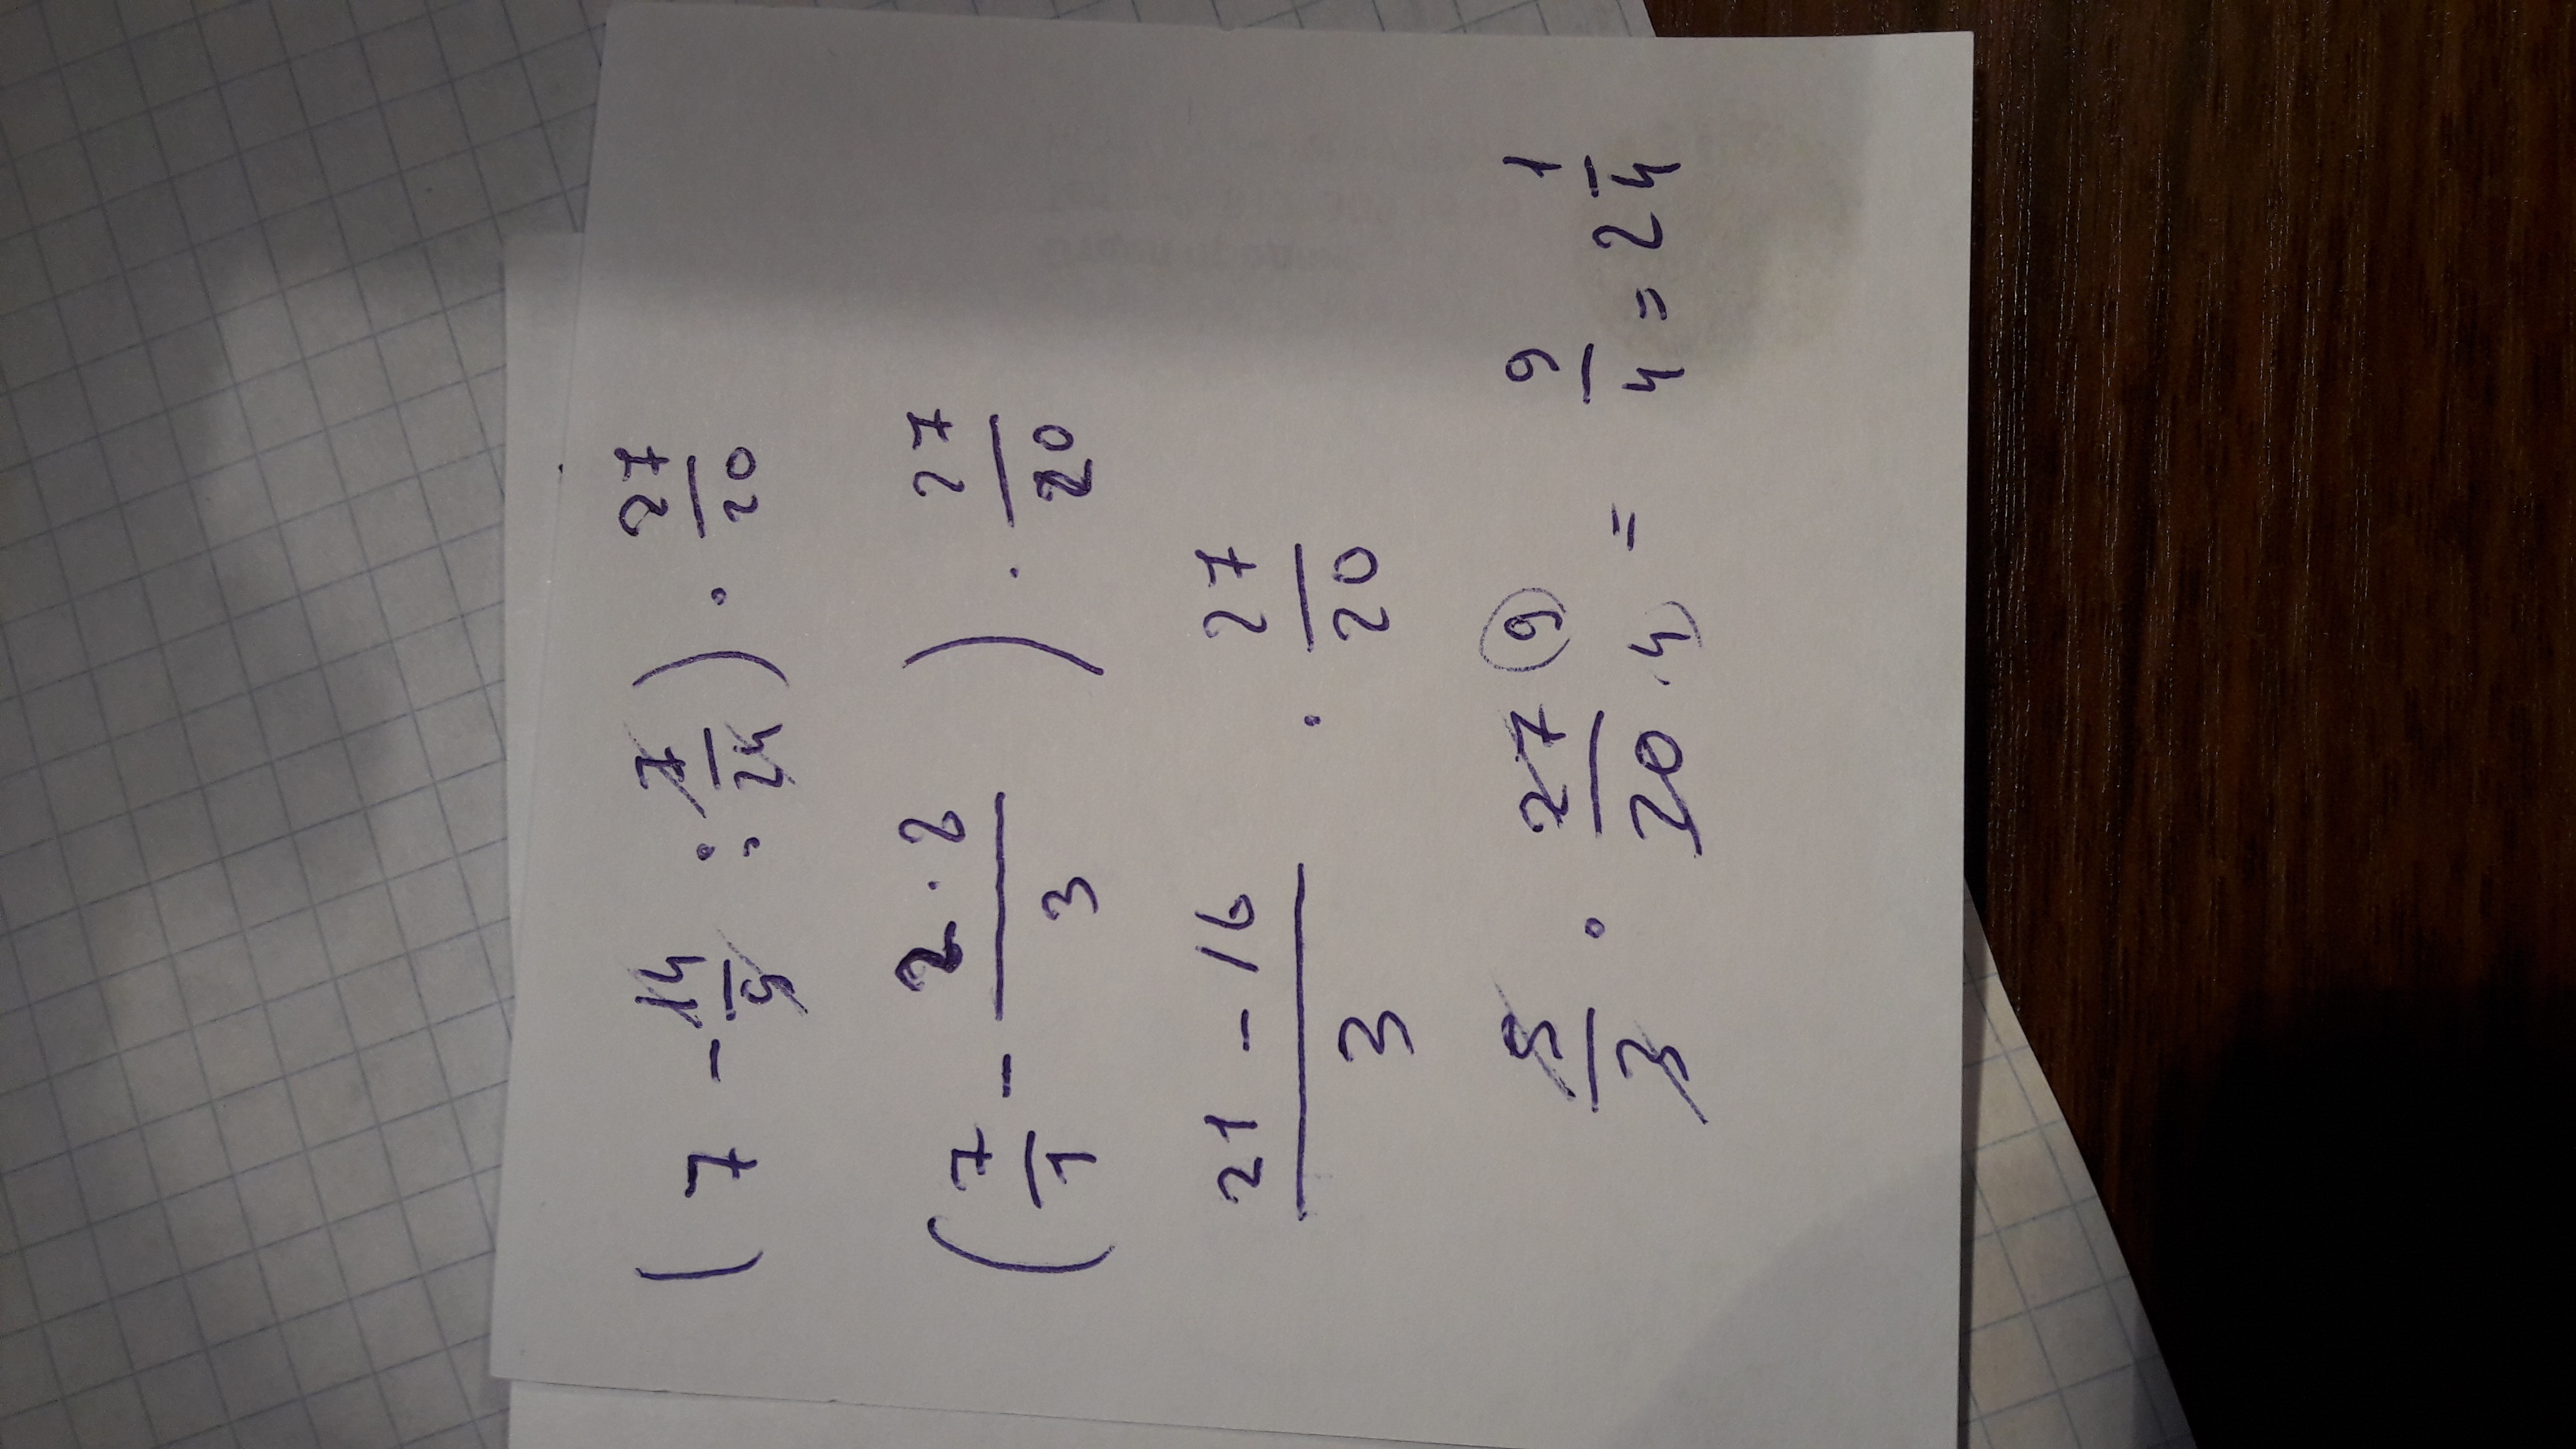 (7 - 14/9 : 7/24) · 27/20
(7/1 - 2·8/3) · 27/20
21 - 16/3 · 27/20
5/3 · 27 9/20 4 = 9/4 = 2 1/4